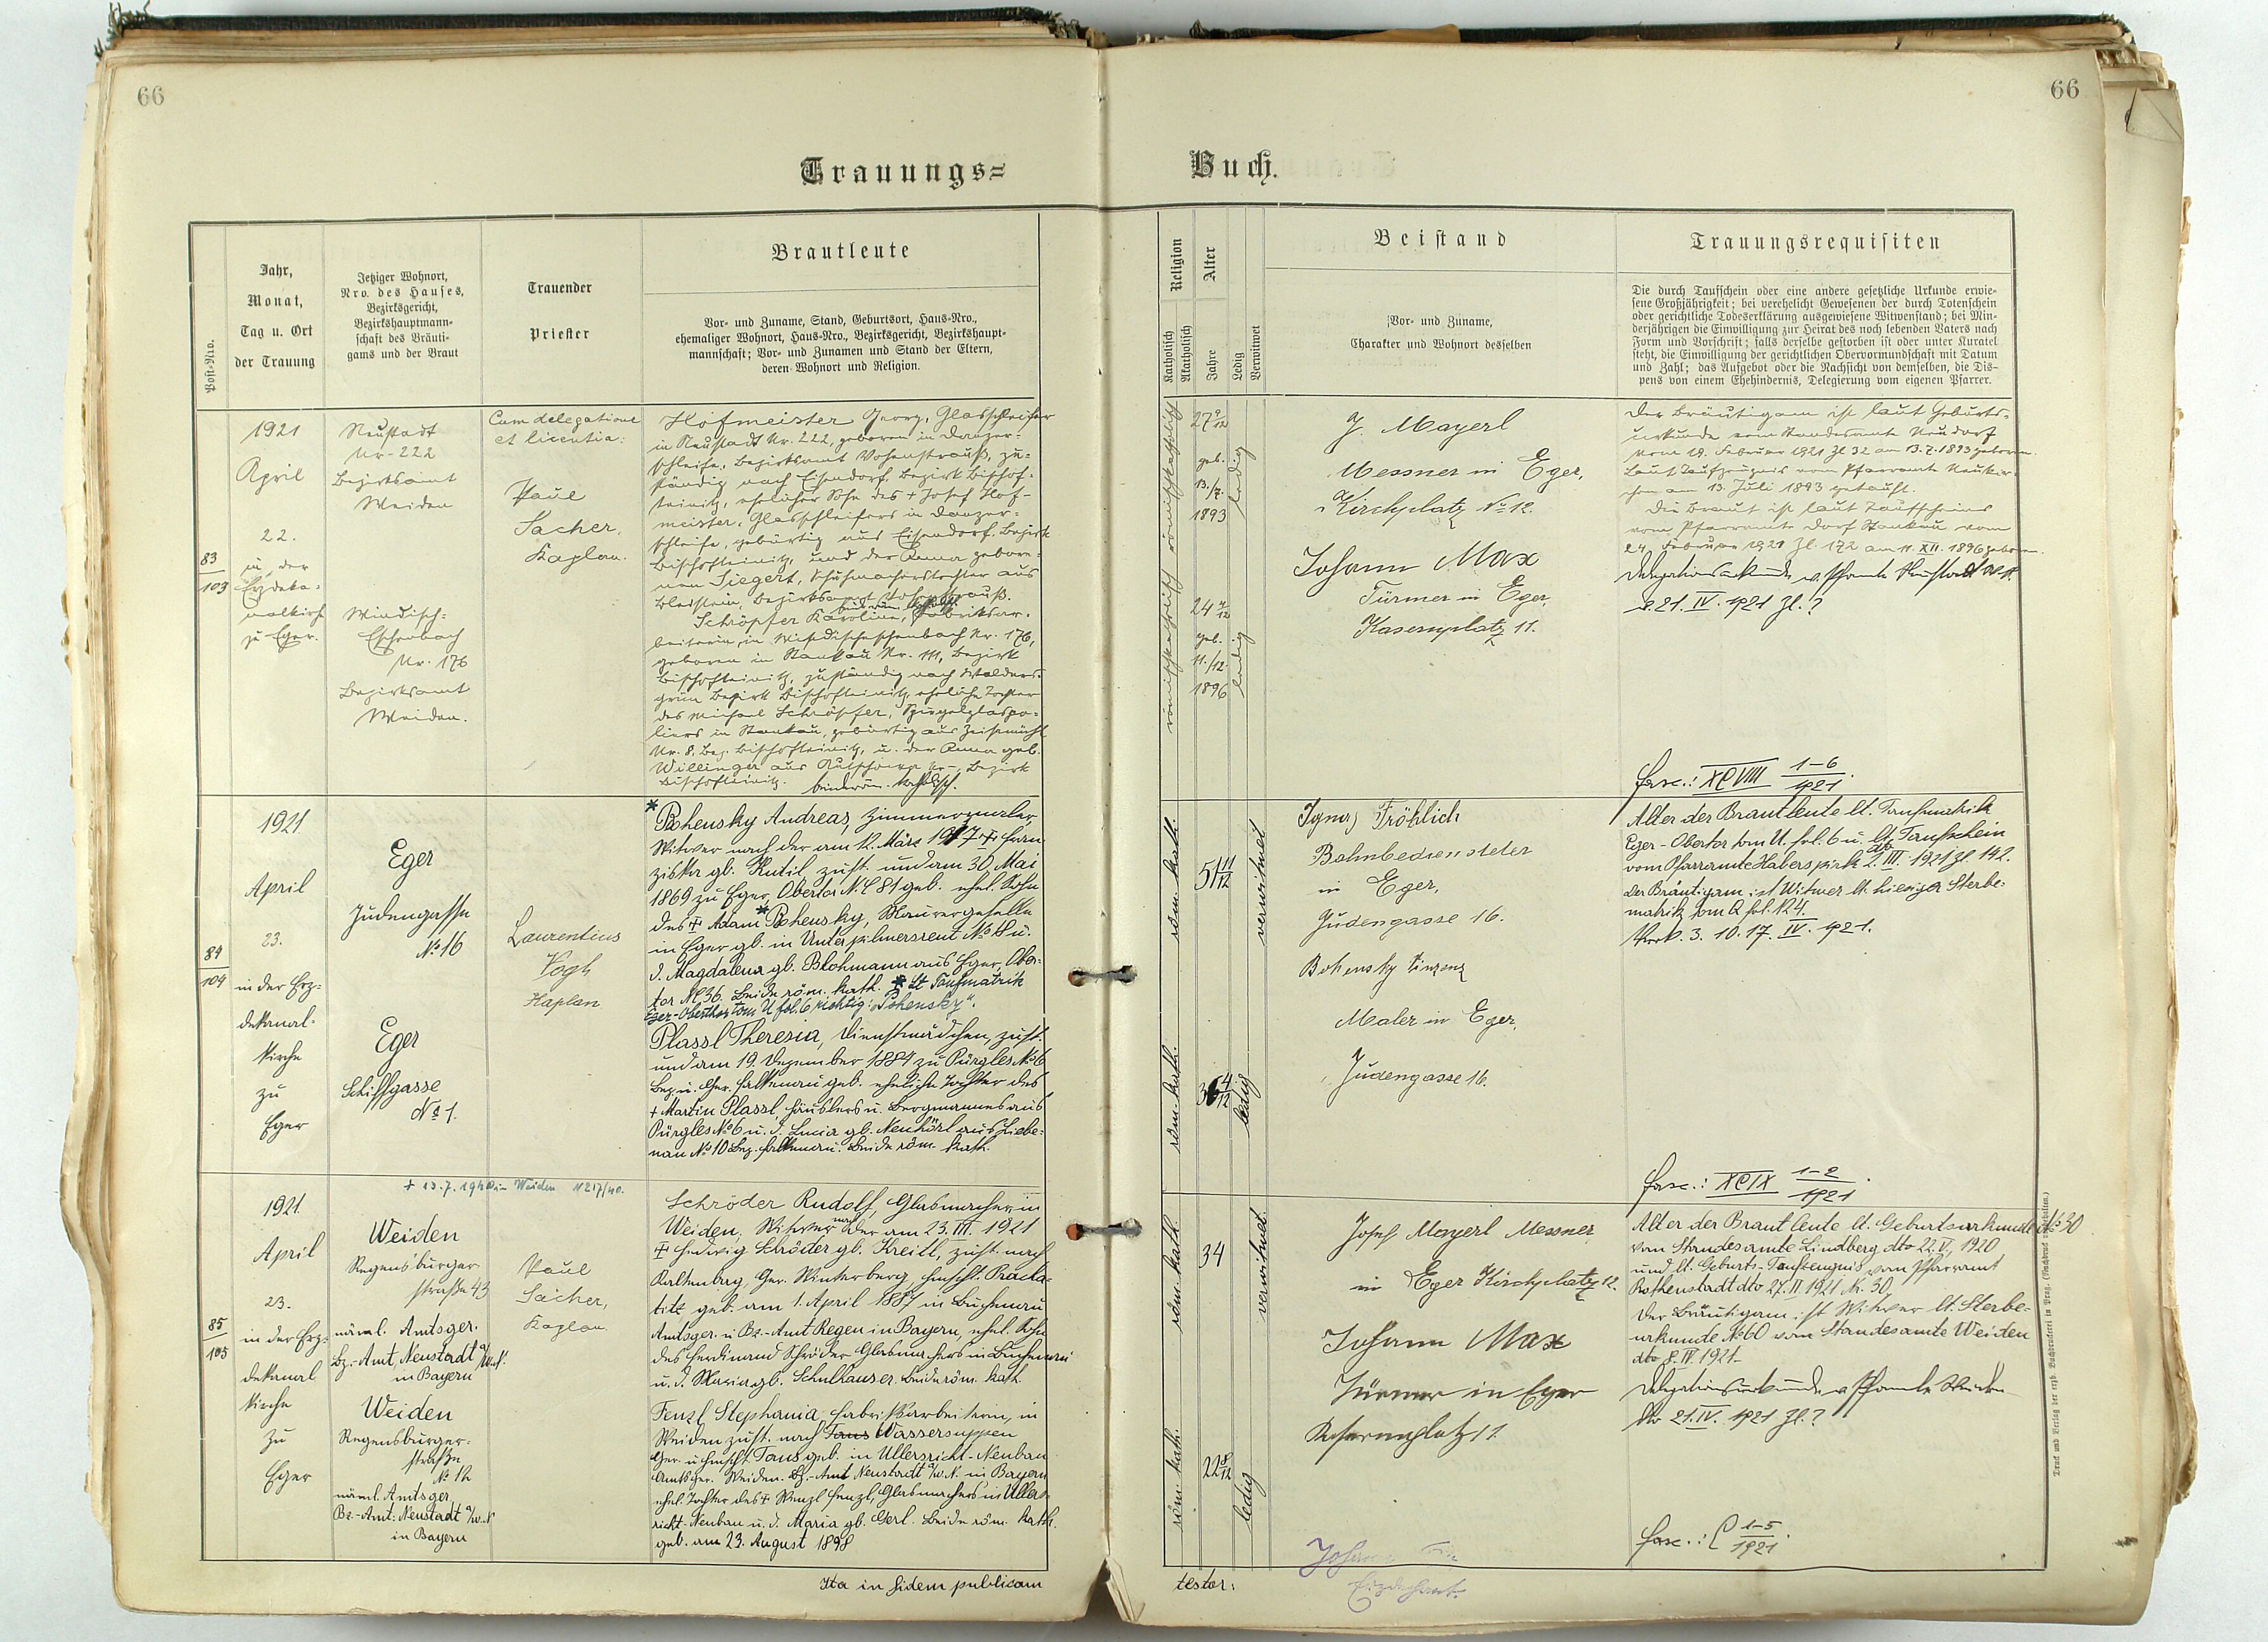 66
66
Trauungs=
Buch.
Post-Nro.
Jahr,
Monat,
Tag u. Ort
der Trauung
Jetziger Wohnort,
Nro. des Hauses,
Bezirksgericht,
Bezirkshauptmann-
schaft des Bräuti-
gams und der Braut
Trauender
Priester
Brautleute
Vor- und Zuname, Stand, Geburtsort, Haus-Nro.,
ehemaliger Wohnort, Haus-Nro., Bezirksgericht, Bezirkshaupt-
mannschaft; Vor- und Zunamen und Stand der Eltern,
deren Wohnort und Religion.
Religion
Katholisch
Akatholisch
Alter
Jahre
Ledig
Verwitwet
Beistand
Vor- und Zuname,
Charakter und Wohnort desselben
Trauungsrequisiten
Die durch Taufschein oder eine andere gesetzliche Urkunde erwie-
sene Großjährigkeit; bei verehelicht Gewesenen der durch Totenschein
oder gerichtliche Todeserklärung ausgewiesene Witwenstand; bei Min-
derjährigen die Einwilligung zur Heirat des noch lebenden Vaters nach
Form und Vorschrift; falls derselbe gestorben ist oder unter Kuratel
steht, die Einwilligung der gerichtlichen Obervormundschaft mit Datum
und Zahl; das Aufgebot oder die Nachsicht von demselben, die Dis-
pens von einem Ehehindernis, Delegierung vom eigenen Pfarrer.
83
103
1921
April
22.
in der
Erzdeka-
nalkirche
zu Eger.
Neustadt
Nr. 222
Bezirksamt
Weiden
Windisch-
Eschenbach
Nr. 176
Bezirksamt
Weiden.
Cum delegatione
et licentia:
Paul
Sacher,
Kaplan.
Hofmeister Georg, Glasschleifer
in Neustadt Nr. 222, geboren in Danzer-
schleife, Bezirksamt Vohenstrauß, zu-
ständig nach Eisendorf, Bezirk Bischof-
teinitz, ehelicher Sohn des + Josef Hof-
meister, Glasschleifers in Danzer-
schleife, gebürtig aus Eisendorf, Bezirk
Bischofteinitz, und der Anna gebore-
nen Siegert, Schuhmacherstochter aus
Bleistein, Bezirksamt Vohenstrauß.
Schröpfer Karolina, Fabriksar-
beiterin in Windischeschenbach Nr. 176,
geboren in Stankau Nr. 111, Bezirk
Bischofteinitz, zuständig nach Walders-
grün Bezirk Bischofteinitz, eheliche Tochter
des Michael Schröpfer, Spiegelglaspo-
liers in Stankau, gebürtig aus
Nr. 8, Bez. Bischofteinitz, u. der Anna geb.
Willinger aus Bezirk
Bischofteinitz. beide röm. katholisch.
römischkatholisch
römischkatholisch
27 9/12
geb.
13./7.
1893
ledig
24 4/12
geb.
11./12.
1896
ledig
J. Mayerl
Messner in Eger,
Kirchplatz No 12.
Johann Max
Türmer in Eger,
Kasernplatz 11.
Der Bräutigam ist laut Geburts-
urkunde vom Standesamte Neudorf
vom 19. Februar 1921 Zl 32 am 13.7.1893 geboren.
Laut Taufzeugnis vom Pfarramte Neukir-
chen am 13. Juli 1893 getauft.
Die Braut ist laut Taufscheines
vom Pfarramte Dorf Stankau vom
24. Februar 1921 Zl. 172 am 11. XII. 1896 geboren.
Delegationsurkunde v. Pfarramte Neustadt
v. 21. IV. 1921 Zl. ?
fasc.: XCVIII 1-6/1921.
84
104
1921
April
23.
in der Erz-
dekanal-
kirche
zu
Eger
Eger
Judengasse
No 16
Eger
Schiffgasse
No 1.
Laurentius
Vogl
Kaplan
* Bohensky Andreas, Zimmermaler,
Witwer nach der am 12. März 1917 + Fran-
ziska gb. Kutil, zust. und am 30. Mai
1869 zu Eger, Obertor N.C 81 geb. ehel. Sohn
des + Adam * Bohensky, Maurergeselle
in Eger gb. in Unterpilmersreut No 18 u.
d. Magdalena gb. Blohmann aus Eger, Ober-
tor NC 36. Beide röm. kath. * Lt Taufmatrik
Eger-Oberthor tom U fol. 6 richtig: "Pohensky".
Plassl Theresia, Dienstmädchen, zust.
und am 19. Dezember 1884 zu Pürgles No 6
Bez. u. Ger. Falkenau geb. eheliche Tochter des
+ Martin Plassl, Häuslers u. Bergmannes aus
Pürgles No 6 u. d. Lucia gb. Neuhörl aus Liebe-
nau No 10 Bez. Falkenau. Beide röm. kath.
röm. kath.
röm. kath.
51 11/12
verwitwet
36 4/12
ledig
Ignaz Fröhlich
Bahnbediensteter
in Eger,
Judengasse 16.
Bohensky Vinzenz
Maler in Eger,
Judengasse 16.
Alter der Brautleute lt. Taufmatrik
Eger-Obertor tom U. fol. 6 u. lt. Taufschein
vom Pfarramte Haberspirk dto 2. III. 1921 Zl. 142.
Der Bräutigam ist Witwer lt. hiesiger Sterbe-
matrik tom Q fol. 124.
Verk. 3. 10. 17. IV. 1921.
fasc.: XCIX 1-2/1921.
85
105
1921.
April
23.
in der Erz-
dekanal
kirche
zu
Eger
+ 13.7.1940 in Weiden N 217/40.
Weiden
Regensburger
straße 43
näml. Amtsger.
Bz.-Amt, Neustadt a/W.N.
in Bayern
Weiden
Regensburger-
straße
No 12
näml. Amtsger.
Bz.-Amt: Neustadt a/W.N
in Bayern
Paul
Sacher,
Kaplan
Schröder Rudolf, Glasmacher in
Weiden, Witwer nach der am 23. III. 1921
+ Hedwig Schröder gb. Kreitl, zust. nach
Kaltenbach, Ger. Winterberg, Hmscht. Pracha-
titz geb. am 1. April 1887 in Buchenau
Amtsger. u. Bz.-Amt Regen in Bayern, ehel. Sohn
des Ferdinand Schröder Glasmachers in Buchenau
u. d. Maria gb. Schulhauser. Beide röm. kath.
Fenzl Stephania, Fabriksarbeiterin, in
Weiden zust. nach Taus Wassersuppen
Ger. u. Hmscht. Taus geb. in Ullersricht-Neubau
Amtsger. Weiden. Bz.-Amt Neustadt a/W. N. in Bayern
ehel. Tochter des + Wenzl Fenzl, Glasmachers in Ullers-
richt-Neubau u. d. Maria gb. Gerl. Beide röm. kath.
geb. am 23. August 1898
röm. kath.
röm. kath.
34
verwitwet
22 8/12
ledig
Josef Mayerl Messner
in Eger Kirchplatz 12.
Johann Max
Türmer in Eger
Kasernplatz 11.
Alter der Brautleute lt. Geburtsurkunde No 30
vom Standesamte Lindberg dto 22. V. 1920
und lt. Geburts-Taufzeugnis vom Pfarramt
Rothenstadt dto 27. II 1921 Nr. 30,
Der Bräutigam ist Witwer lt. Sterbe-
urkunde No 60 vom Standesamte Weiden
dto 8. IV. 1921.-
Delegationsurkunde v. Pfarramte Weiden
dto 21. IV. 1921 Zl. ?
fasc.: C 1-5/1921.
Ita in fidem publicam
testor:
Erzdechant.
Druck und Verlag der erzb. Buchdruckerei in Prag. (Nachdruck verboten.)